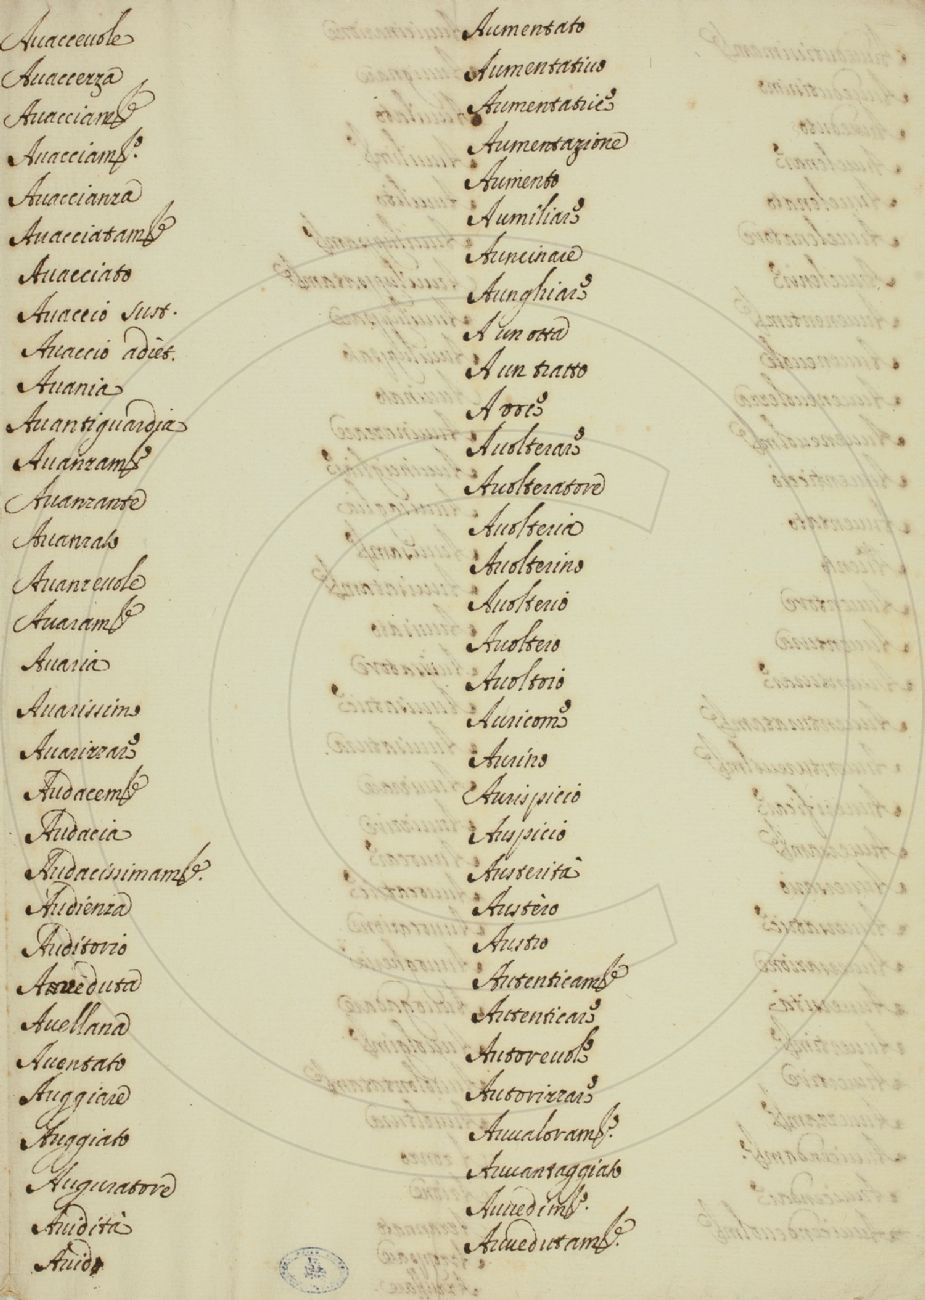 Auacceuole
Auaccezza
Auacciam.te
Auacciam.to
Auaccianza
Auacciatam.te
Auacciato
Auaccio sust.
Auaccio adiet.
Auania
Auantiguardia
Auanzam.to
Auanzante
Auanzato
Auanzeuole
Auaram.te
Auaria
Auarissimo
Auarizzare
Audacem.te
Audacia
Audacissimam.te
Audienza
Auditorio
Aueduta
Auellana
Auentato
Auggiare
Auggiato
Auguratore
Auidità
Auido
Aumentato
Aumentatiuo
Aumentatrice
Aumentazione
Aumento
Aumiliare
Auncinare
Aunghiare
A un otta
A un tratto
A voce
Auolterare
Auolteratore
Auolteria
Auolterino
Auolterio
Auoltero
Auoltoio
Auricomo
Aurino
Aurispicio
Auspicio
Austerità
Austèro
Austro
Autenticam.te
Autenticare
Autoreuole
Autorizzare
Auualoram.to
Auuantaggiato
Auuedim.to
Auuedutam.te